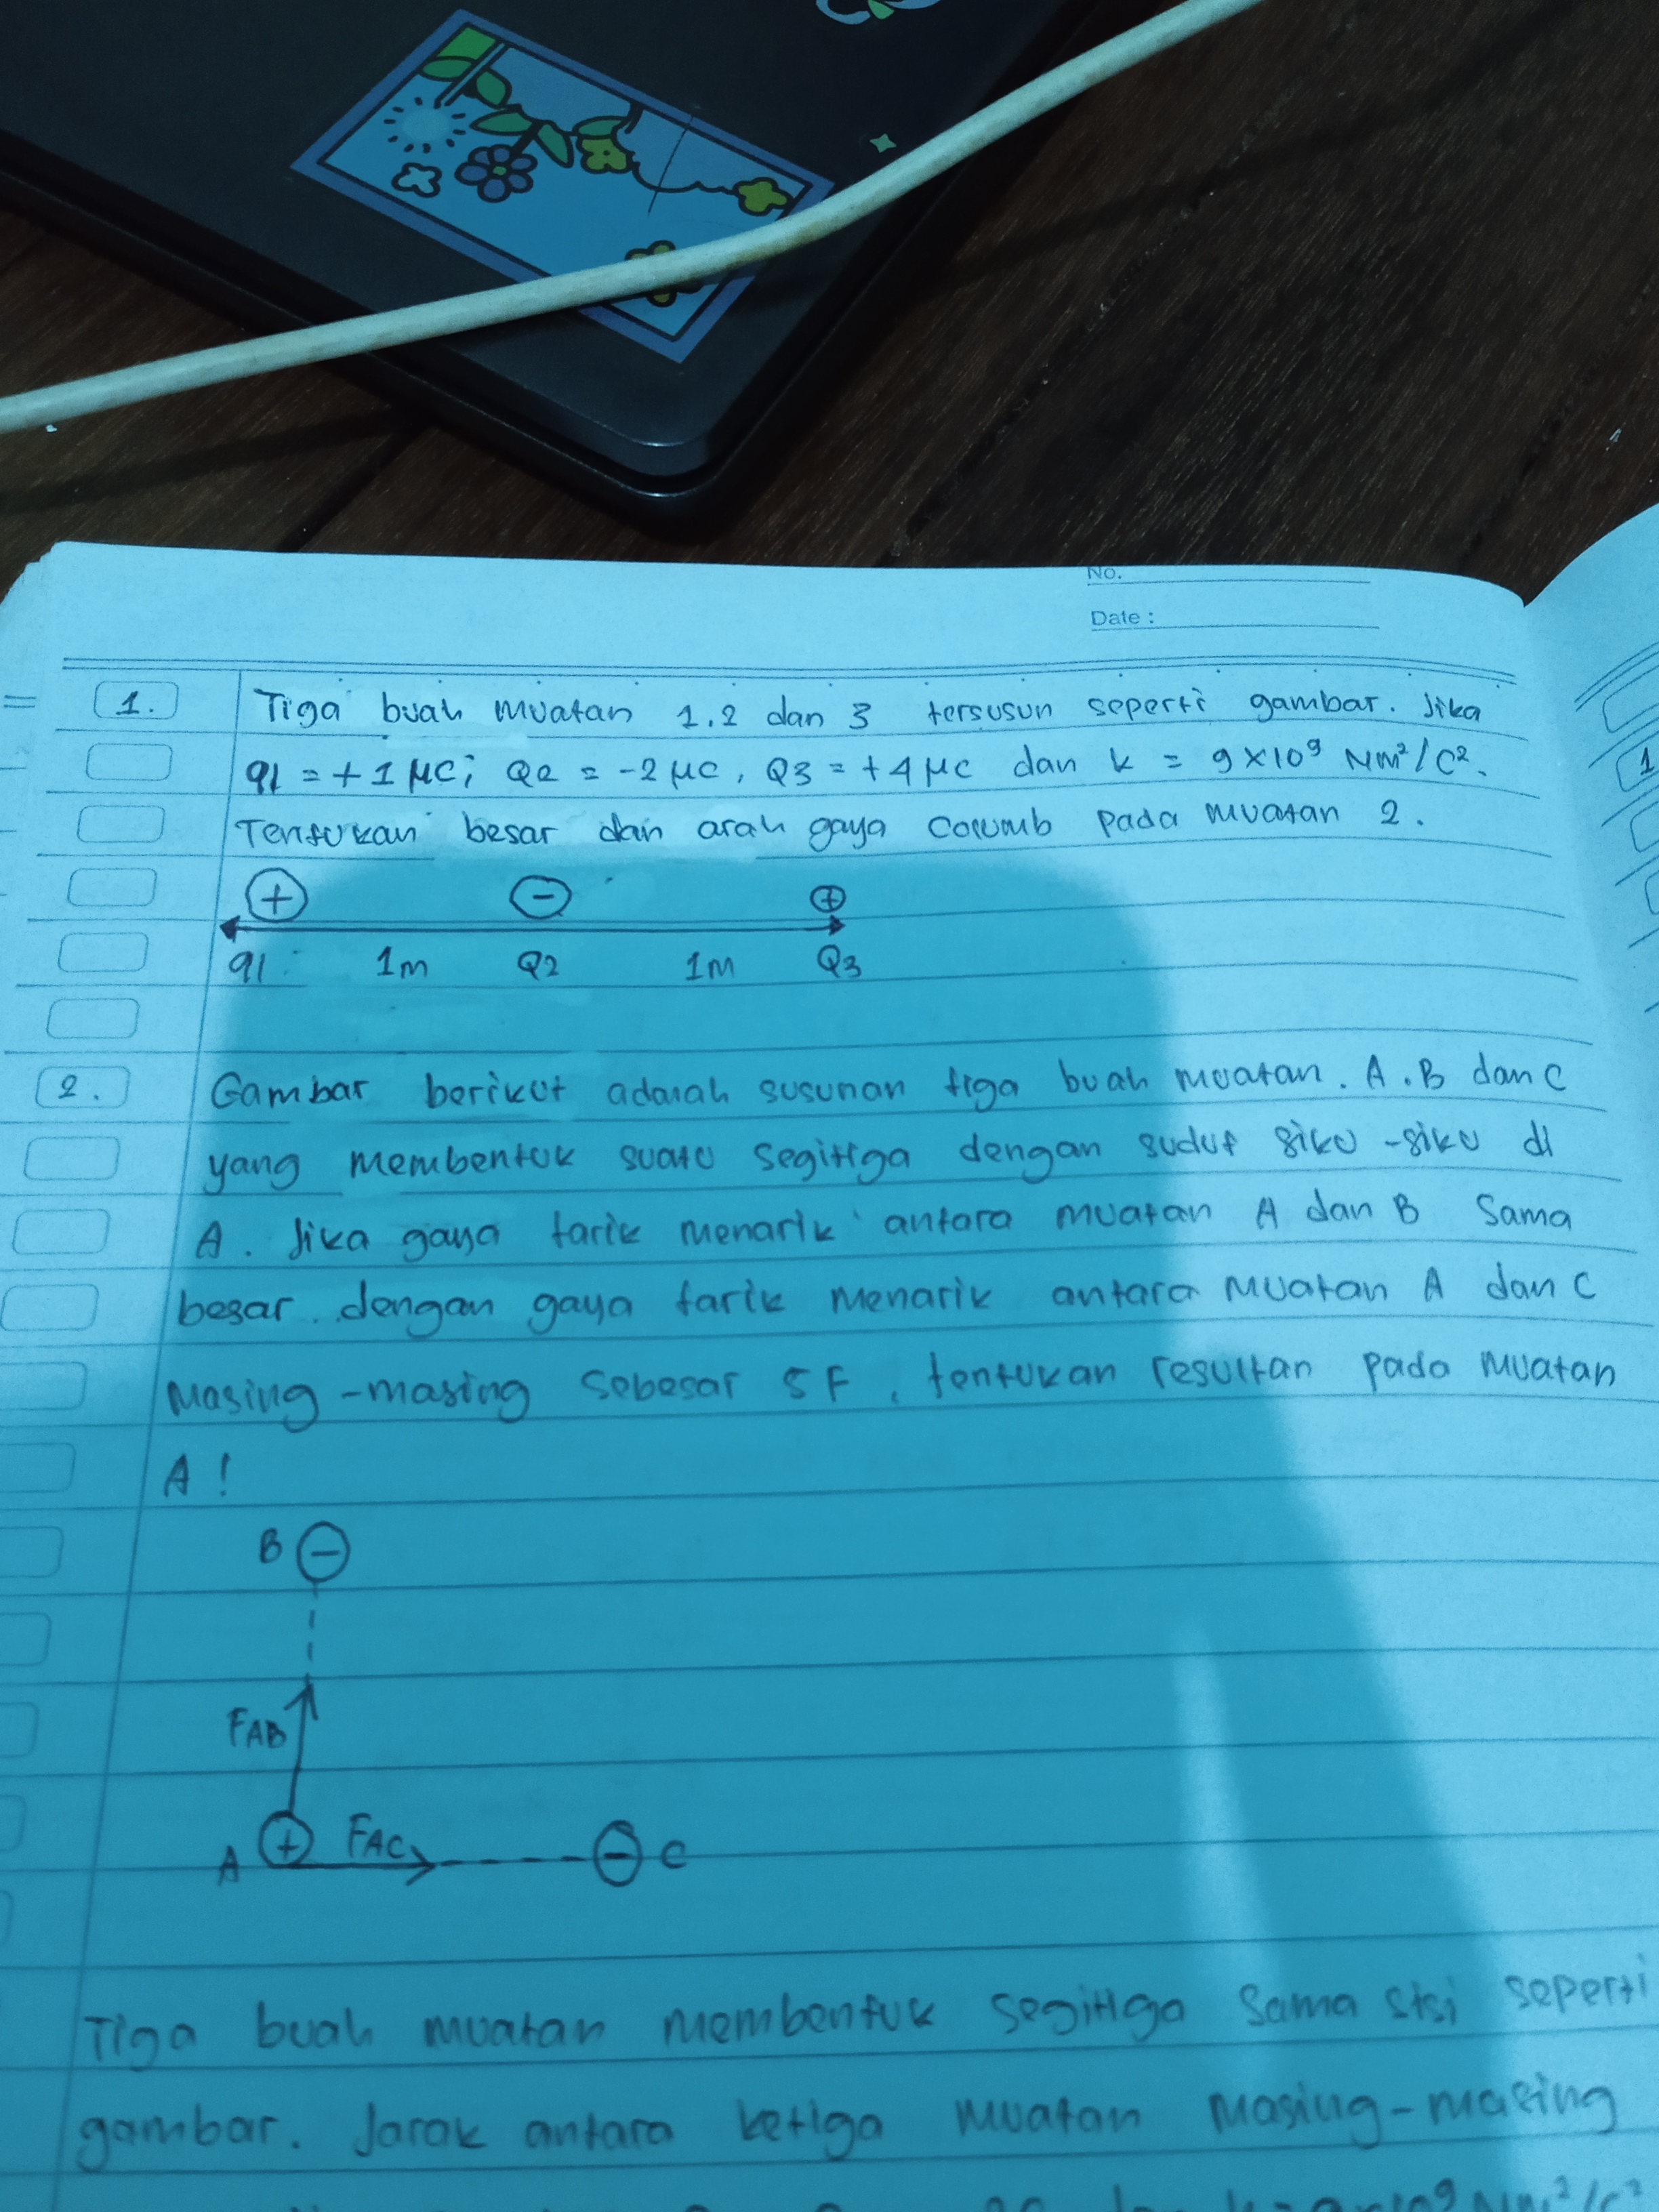 No.
Date :
1. Tiga buah muatan 1.2 dan 3 tersusun seperti gambar. Jika
q1 = +1 μC; Q2 = -2 μC, Q3 = +4 μC dan k = 9×10⁹ Nm²/C².
Tentukan besar dan arah gaya coloumb pada muatan 2.
+ - +
q1 1m Q2 1m Q3
2. Gambar berikut adalah susunan tiga buah muatan. A, B dan C
yang membentuk suatu segitiga dengan sudut siku-siku di
A. Jika gaya tarik menarik antara muatan A dan B sama
besar dengan gaya tarik menarik antara muatan A dan C
masing-masing sebesar 5F, tentukan resultan pada muatan
A!
B -
FAB
A + FAC - C
Tiga buah muatan membentuk segitiga sama sisi seperti
gambar. Jarak antara ketiga muatan masing-masing